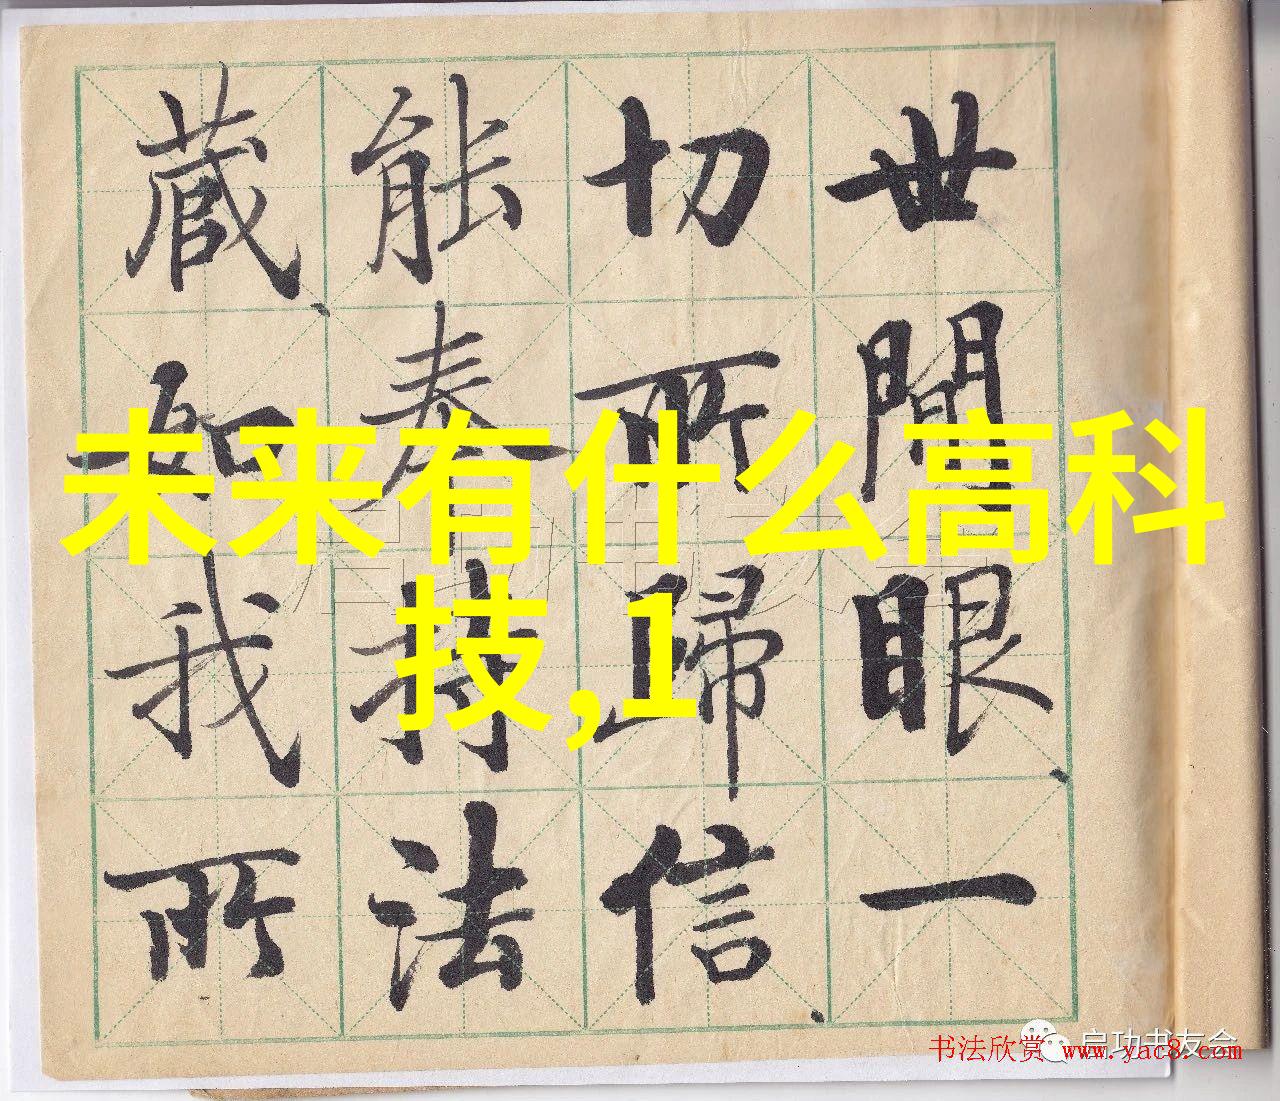 世間眼一
切所歸信
能奉持法
藏如我所
未来有什么高科
技,1
启功书友会
启功书友会
书法欣赏 www.yac8.com